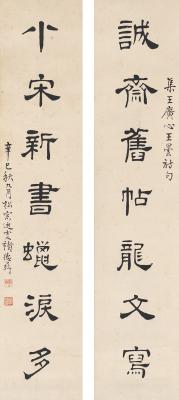 集王廣心王曇詩句
誠齋舊帖龍文寫
小宋新書蠟淚多
辛巳秋九月松窗逸叟褚德彝